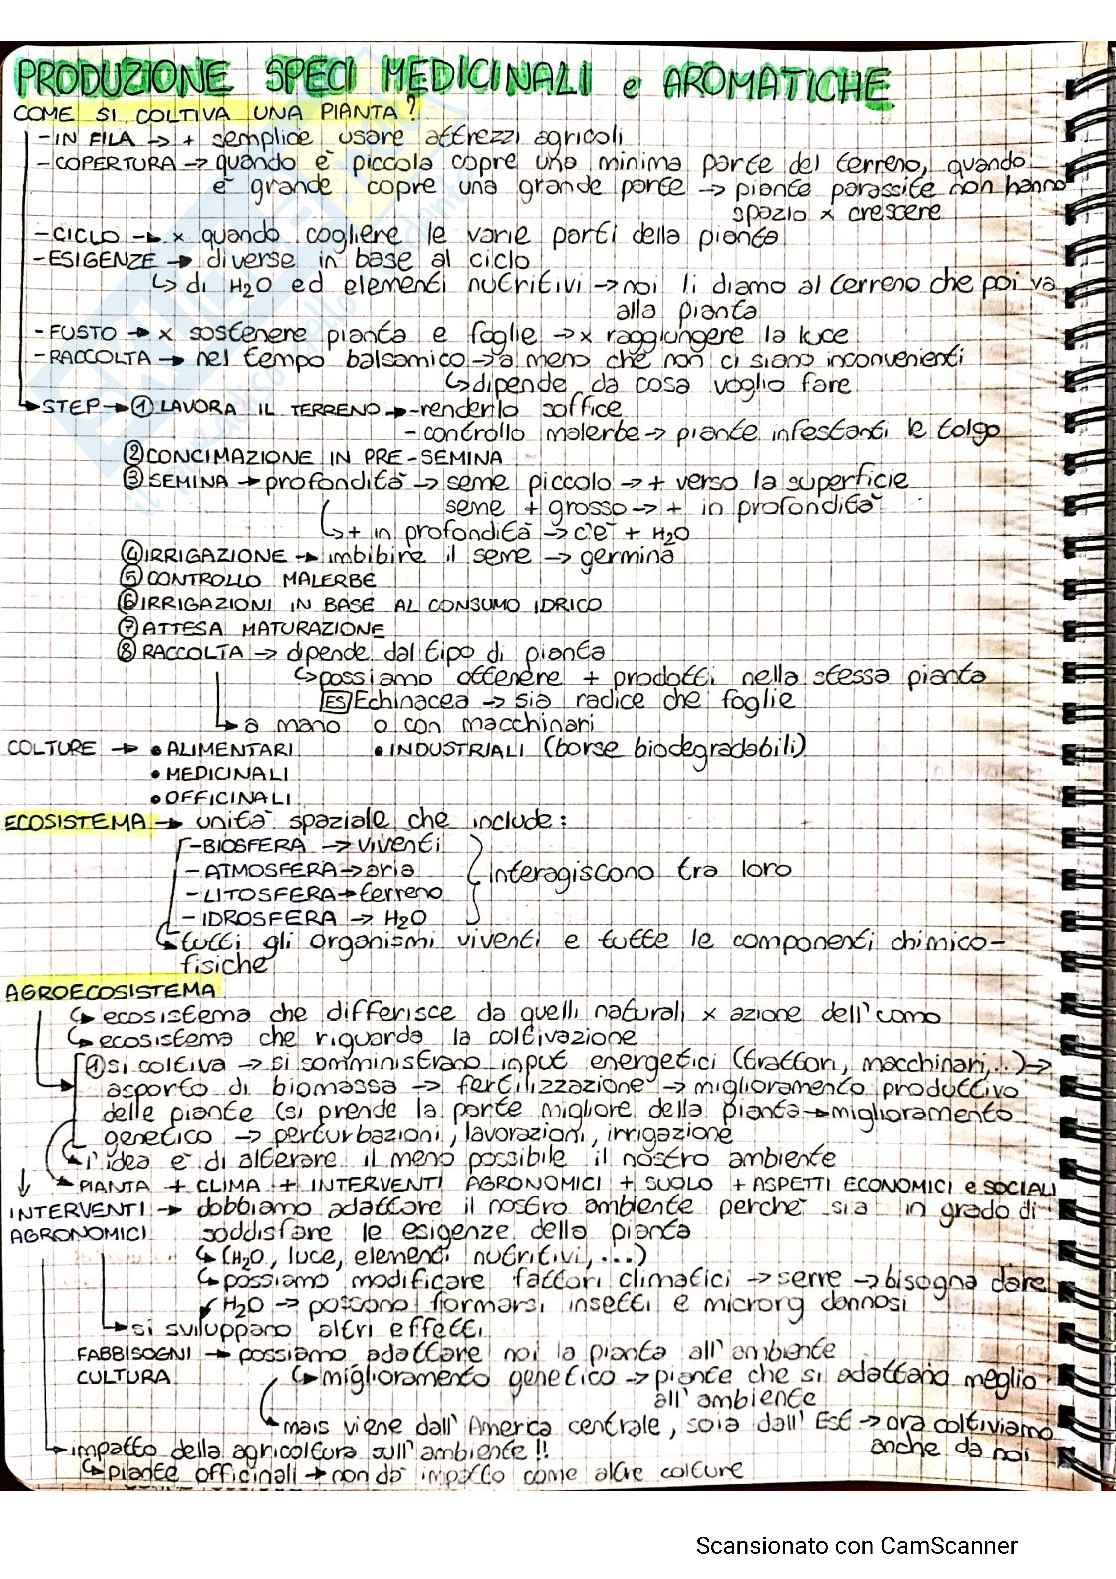 PRODUZIONE SPECI MEDICINALI e AROMATICHE
COME SI COLTIVA UNA PIANTA?
-IN FILA → + semplice usare attrezzi agricoli
-COPERTURA → quando è piccola copre una minima parte del terreno, quando
è grande copre una grande parte → piante parassite non hanno
spazio x crescere
-CICLO → x quando cogliere le varie parti della pianta
-ESIGENZE → diverse in base al ciclo
↳ di H₂O ed elementi nutritivi → noi li diamo al terreno che poi va
alla pianta
-FUSTO → x sostenere pianta e foglie → x raggiungere la luce
-RACCOLTA → nel tempo balsamico → a meno che non ci siano inconvenienti
↳ dipende da cosa voglio fare
→ STEP → ① LAVORA IL TERRENO → -renderlo soffice
- controllo malerbe → piante infestanti le tolgo
② CONCIMAZIONE IN PRE-SEMINA
③ SEMINA → profondità → seme piccolo → + verso la superficie
seme + grosso → + in profondità
↳ + in profondità → c'è + H₂O
④ IRRIGAZIONE → imbibire il seme → germina
⑤ CONTROLLO MALERBE
⑥ IRRIGAZIONI IN BASE AL CONSUMO IDRICO
⑦ ATTESA MATURAZIONE
⑧ RACCOLTA → dipende dal tipo di pianta
↳ possiamo ottenere + prodotti nella stessa pianta
ES Echinacea → sia radice che foglie
↳ a mano o con macchinari
COLTURE → • ALIMENTARI • INDUSTRIALI (borse biodegradabili)
• MEDICINALI
• OFFICINALI
ECOSISTEMA → unità spaziale che include:
-BIOSFERA → viventi
-ATMOSFERA → aria
-LITOSFERA → terreno
-IDROSFERA → H₂O
interagiscono tra loro
↳ tutti gli organismi viventi e tutte le componenti chimico-
fisiche
AGROECOSISTEMA
↳ ecosistema che differisce da quelli naturali x azione dell'uomo
↳ ecosistema che riguarda la coltivazione
① si coltiva → si somministrano input energetici (trattori, macchinari,...) →
asporto di biomassa → fertilizzazione → miglioramento produttivo
delle piante (si prende la parte migliore della pianta → miglioramento
genetico → perturbazioni, lavorazioni, irrigazione
↳ l'idea è di alterare il meno possibile il nostro ambiente
↳ PIANTA + CLIMA + INTERVENTI AGRONOMICI + SUOLO + ASPETTI ECONOMICI e SOCIALI
INTERVENTI → dobbiamo adattare il nostro ambiente perchè sia in grado di
AGRONOMICI soddisfare le esigenze della pianta
↳ (H₂O, luce, elementi nutritivi,...)
↳ possiamo modificare fattori climatici → serre → bisogna dare
H₂O → possono formarsi insetti e microrg dannosi
↳ si sviluppano altri effetti
FABBISOGNI → possiamo adattare noi la pianta all'ambiente
CULTURA ↳ miglioramento genetico → piante che si adattano meglio
all'ambiente
↳ mais viene dall'America centrale, soia dall'Est → ora coltiviamo
anche da noi
↳ impatto della agricoltura sull'ambiente!!
↳ piante officinali → non dà impatto come altre colture
Scansionato con CamScanner